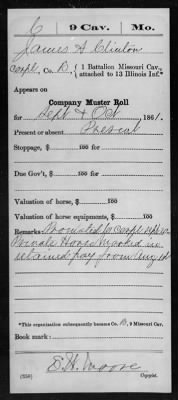 C | 9 Cav. | Mo.
James A Clinton
Corpl, Co. B, { 1 Battalion Missouri Cav., attached to 13 Illinois Inf.*
Appears on
Company Muster Roll
for Sept & Oct, 1861.
Present or absent Present
Stoppage, $ 100 for
Due Gov't, $ 100 for
Valuation of horse, $ 100
Valuation of horse equipments, $ 100
Remarks: Promoted to Corpl
Private Horse
retained pay from Aug
*This organization subsequently became Co. B, 9 Missouri Cav.
Book mark:
E. H. Moore
(358) Copyist.